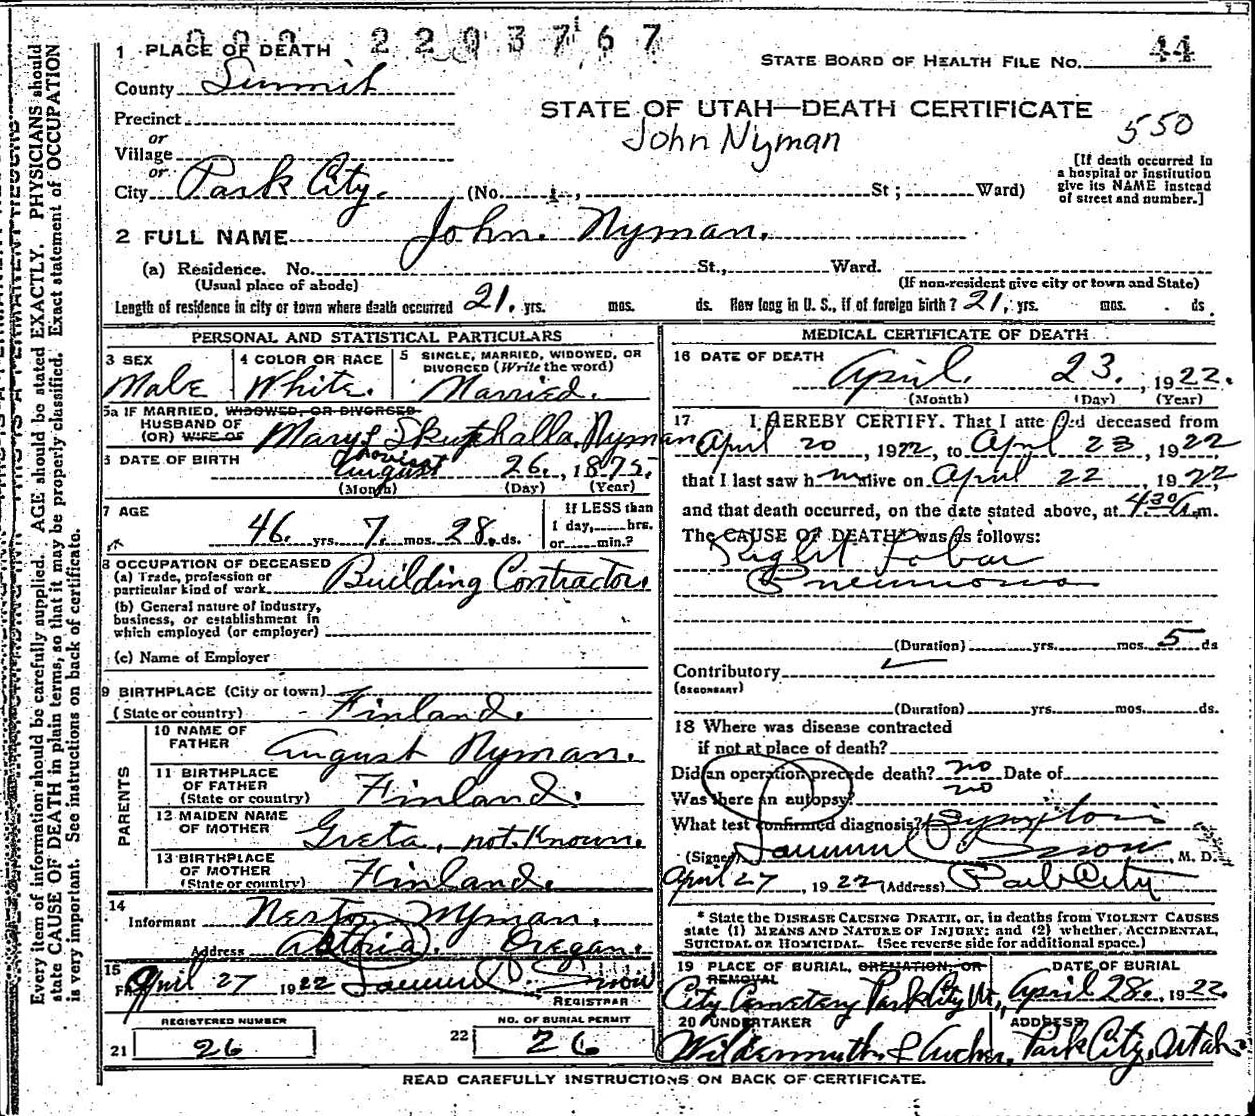 2203767
1 PLACE OF DEATH
STATE BOARD OF HEALTH FILE NO. 44
County Summit
STATE OF UTAH—DEATH CERTIFICATE
John Nyman
550
Precinct
or
Village
or
City Park City. (No. 1, St; Ward)
[If death occurred in
a hospital or institution
give its NAME instead
of street and number.]
2 FULL NAME John. Nyman.
(a) Residence. No. St., Ward.
(Usual place of abode) (If non-resident give city or town and State)
Length of residence in city or town where death occurred 21. yrs. mos. ds. How long in U. S., if of foreign birth? 21, yrs. mos. ds.
PERSONAL AND STATISTICAL PARTICULARS
3 SEX
Male
4 COLOR OR RACE
White.
5 SINGLE, MARRIED, WIDOWED, OR
DIVORCED (Write the word)
Married.
5a IF MARRIED, WIDOWED, OR DIVORCED
HUSBAND OF
(OR) WIFE OF
Nyman
6 DATE OF BIRTH
August 26., 1875.
(Month) (Day) (Year)
7 AGE
46. yrs. 7. mos. 28. ds.
If LESS than
1 day, hrs.
or min.?
8 OCCUPATION OF DECEASED
(a) Trade, profession or
particular kind of work Building Contractor.
(b) General nature of industry,
business, or establishment in
which employed (or employer)
(c) Name of Employer
9 BIRTHPLACE (City or town)
(State or country) Finland.
PARENTS
10 NAME OF
FATHER August Nyman.
11 BIRTHPLACE
OF FATHER
(State or country) Finland.
12 MAIDEN NAME
OF MOTHER Greta, not Known.
13 BIRTHPLACE
OF MOTHER
(State or country) Finland.
14
Informant Nyman.
Address Astoria. Oregan.
15
April 27 1922
REGISTRAR
REGISTERED NUMBER
21 26
NO. OF BURIAL PERMIT
22 26
MEDICAL CERTIFICATE OF DEATH
16 DATE OF DEATH
April. 23., 1922.
(Month) (Day) (Year)
17 I HEREBY CERTIFY. That I atte ed deceased from
April 20, 1922, to April 23, 1922
that I last saw h m alive on April 22, 1922,
and that death occurred, on the date stated above, at 430 A.m.
The CAUSE OF DEATH* was as follows:
Right Lobar
Pneumonia
(Duration) yrs. mos. 5 ds
Contributory
(SECONDARY)
(Duration) yrs. mos. ds.
18 Where was disease contracted
if not at place of death?
Did an operation precede death? no Date of
Was there an autopsy? no
What test confirmed diagnosis? Symptoms
(Signed) , M. D.
April 27, 1922 (Address) Park City
* State the DISEASE CAUSING DEATH, or, in deaths from VIOLENT CAUSES
state (1) MEANS AND NATURE OF INJURY; and (2) whether, ACCIDENTAL,
SUICIDAL OR HOMICIDAL. (See reverse side for additional space.)
19 PLACE OF BURIAL, CREMATION, OR
REMOVAL
City Cemetery Park City Ut,
DATE OF BURIAL
April 28., 1922.
20 UNDERTAKER
Wildermuth &
ADDRESS
Park City, Utah.
READ CAREFULLY INSTRUCTIONS ON BACK OF CERTIFICATE.
Every item of information should be carefully supplied. AGE should be stated EXACTLY. PHYSICIANS should
state CAUSE OF DEATH in plain terms, so that it may be properly classified. Exact statement of OCCUPATION
is very important. See instructions on back of certificate.